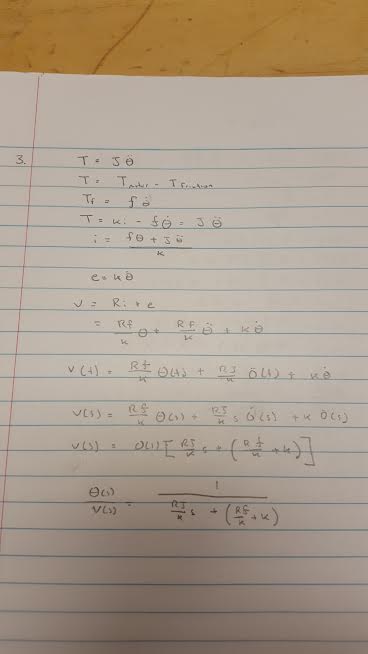 3. T = Jθ̈
T = T_motor - T_friction
T_f = fθ̇
T = Ki - fθ̇ = Jθ̈
i = (fθ + Jθ̈)/K
e = Kθ̇
V = Ri + e
= Rf/K θ + RJ/K θ̈ + Kθ̇
V(t) = Rf/K θ(t) + RJ/K θ̈(t) + Kθ̇
V(s) = Rf/K θ(s) + RJ/K s θ̇(s) + K θ̇(s)
V(s) = θ̇(s) [ RJ/K s + ( Rf/K + K ) ]
θ(s)/V(s) = 1 / ( RJ/K s + ( Rf/K + K ) )